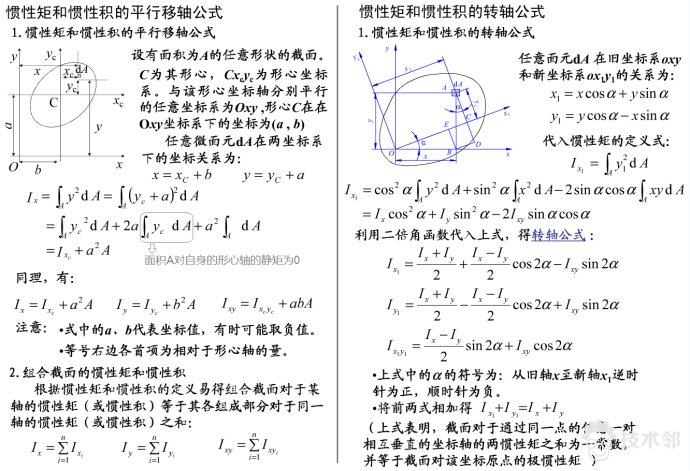 惯性矩和惯性积的平行移轴公式
1.惯性矩和惯性积的平行移轴公式
y
y_c
x
x_c
dA
y_c
C
x_c
a
y
O
b
x
设有面积为A的任意形状的截面。
C为其形心，Cx_cy_c为形心坐标
系。与该形心坐标轴分别平行
的任意坐标系为Oxy ,形心C在在
Oxy坐标系下的坐标为(a , b)
任意微面元dA在两坐标系
下的坐标关系为：
x = x_C + b   y = y_C + a
I_x = ∫_A y² d A = ∫_A (y_c + a)² d A
= ∫_A y_c² d A + 2a ∫_A y_c d A + a² ∫_A d A
= I_{x_c} + a² A
面积A对自身的形心轴的静矩为0
同理，有：
I_x = I_{x_c} + a² A   I_y = I_{y_c} + b² A   I_{xy} = I_{x_cy_c} + abA
注意： •式中的a、b代表坐标值，有时可能取负值。
•等号右边各首项为相对于形心轴的量。
2.组合截面的惯性矩和惯性积
根据惯性矩和惯性积的定义易得组合截面对于某
轴的惯性矩（或惯性积）等于其各组成部分对于同一
轴的惯性矩（或惯性积）之和：
I_x = ∑_{i=1}^n I_{x_i}   I_y = ∑_{i=1}^n I_{y_i}   I_{xy} = ∑_{i=1}^n I_{xy_i}
惯性矩和惯性积的转轴公式
1.惯性矩和惯性积的转轴公式
y
dA
A
α
C
D
E
B
O
α
x
任意面元dA 在旧坐标系oxy
和新坐标系ox₁y₁的关系为：
x₁ = x cos α + y sin α
y₁ = y cos α − x sin α
代入惯性矩的定义式：
I_{x₁} = ∫_A y₁² d A
I_{x₁} = cos² α ∫_A y² d A + sin² α ∫_A x² d A − 2sin α cos α ∫_A xy d A
= I_x cos² α + I_y sin² α − 2I_{xy} sin α cos α
利用二倍角函数代入上式，得转轴公式 ：
I_{x₁} = (I_x + I_y)/2 + (I_x − I_y)/2 cos 2α − I_{xy} sin 2α
I_{y₁} = (I_x + I_y)/2 − (I_x − I_y)/2 cos 2α + I_{xy} sin 2α
I_{x₁y₁} = (I_x − I_y)/2 sin 2α + I_{xy} cos 2α
•上式中的 α 的符号为：从旧轴x至新轴x₁逆时
针为正，顺时针为负。
•将前两式相加得 I_{x₁}+I_{y₁}=I_x + I_y
（上式表明，截面对于通过同一点的任意一对
相互垂直的坐标轴的两惯性矩之和为一常数，
并等于截面对该坐标原点的极惯性矩 ）
技术邻